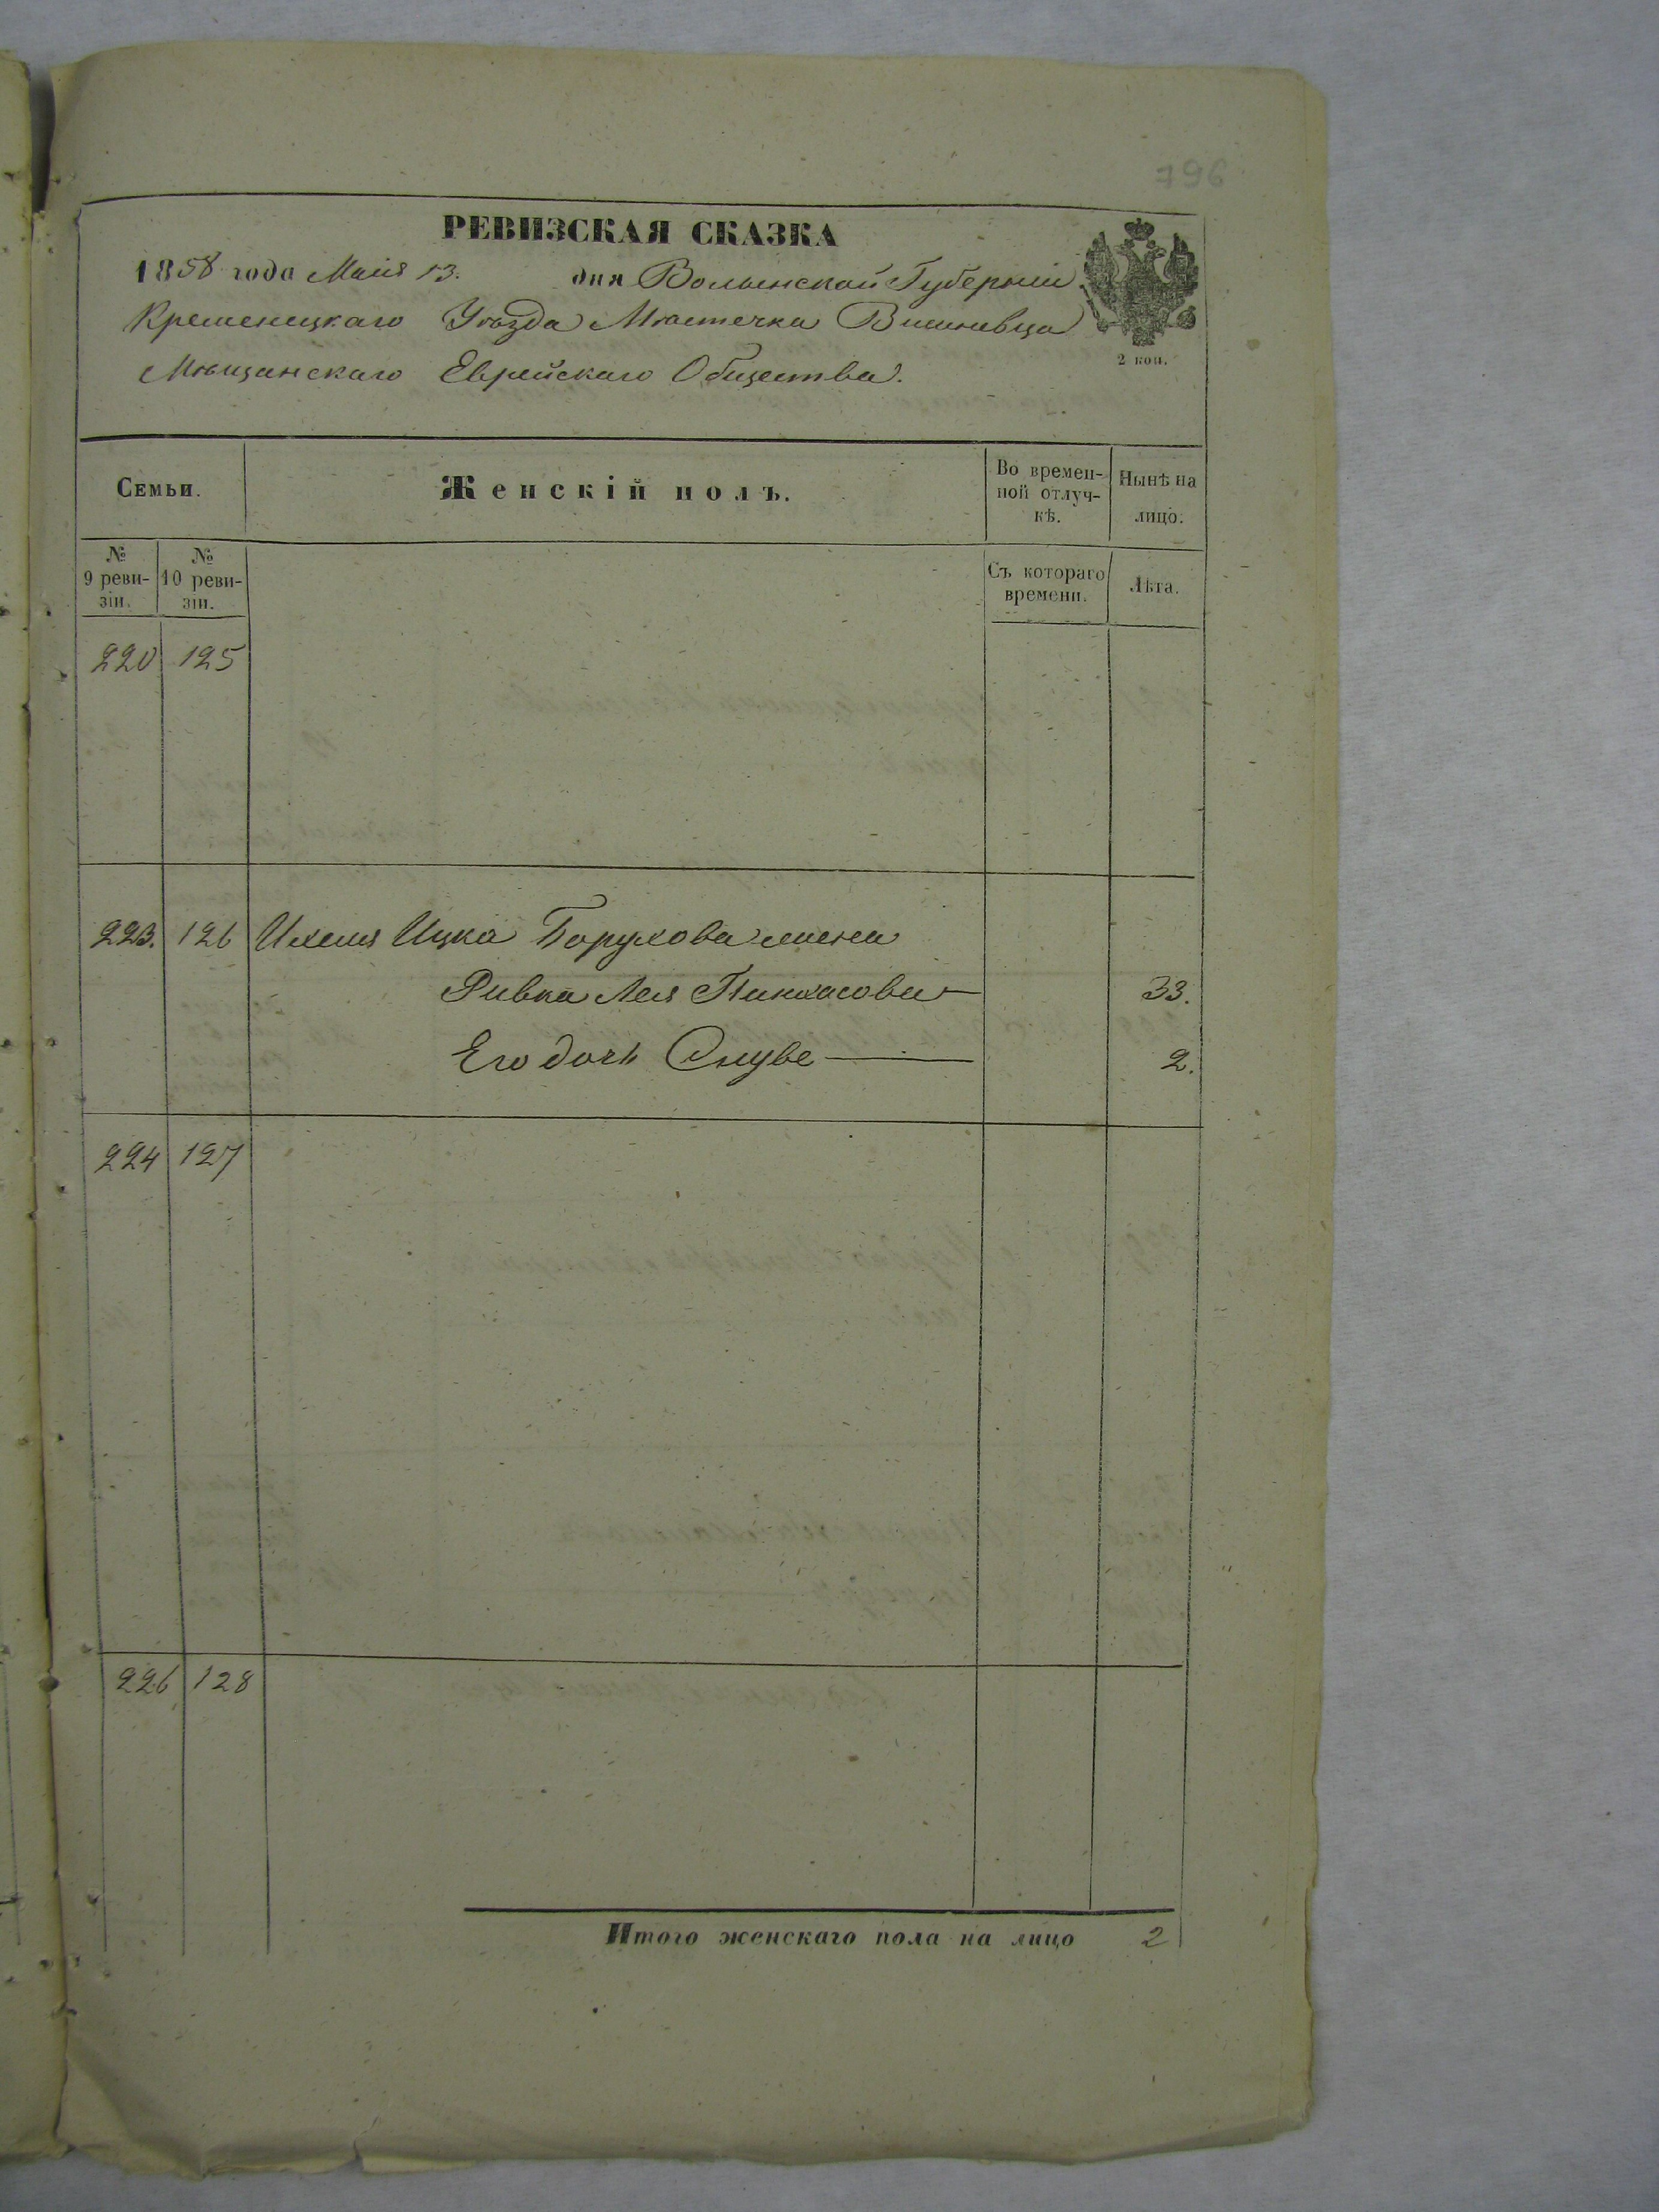 796
РЕВИЗСКАЯ СКАЗКА
1858 года Маія 13. дня Волынской Губерніи
Кременецкаго Уѣзда Мѣстечка Вишнивца
Мѣщанскаго Еврейскаго Общества.
2 коп.
Семьи.
Женскій полъ.
Во времен-
ной отлуч-
кѣ.
Нынѣ на
лицо.
№
9 реви-
зіи.
№
10 реви-
зіи.
Съ котораго
времени.
Лѣта.
220 125
223. 126 Ихеля Ицка Борухова жена
Ривка Лея Пинхасова 33.
Его дочь 2.
224 127
226 128
Итого женскаго пола на лицо 2